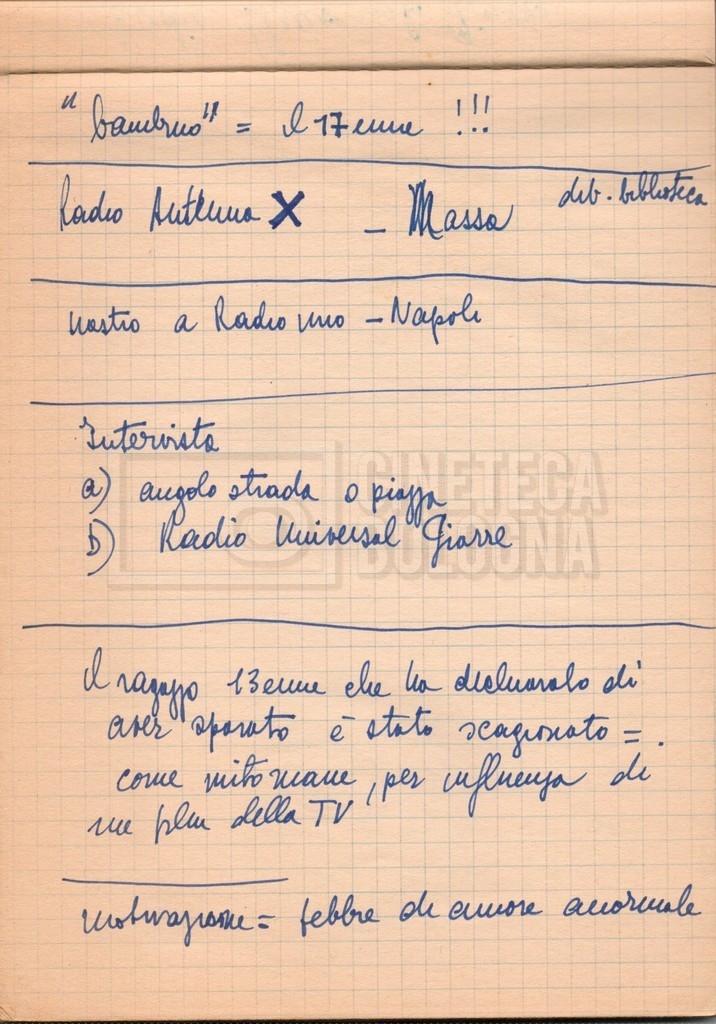 "bambino" = il 17enne !!!
Radio Antenna X - Massa dib. biblioteca
nastro a Radio uno - Napoli
Intervista
a) angolo strada o piazza
b) Radio Universal Giarre
CINETECA
BOLOGNA
Il ragazzo 13enne che ha dichiarato di
aver sparato è stato scagionato =
come mitomane, per influenza di
un film della TV
motivazione = febbre di amore anormale